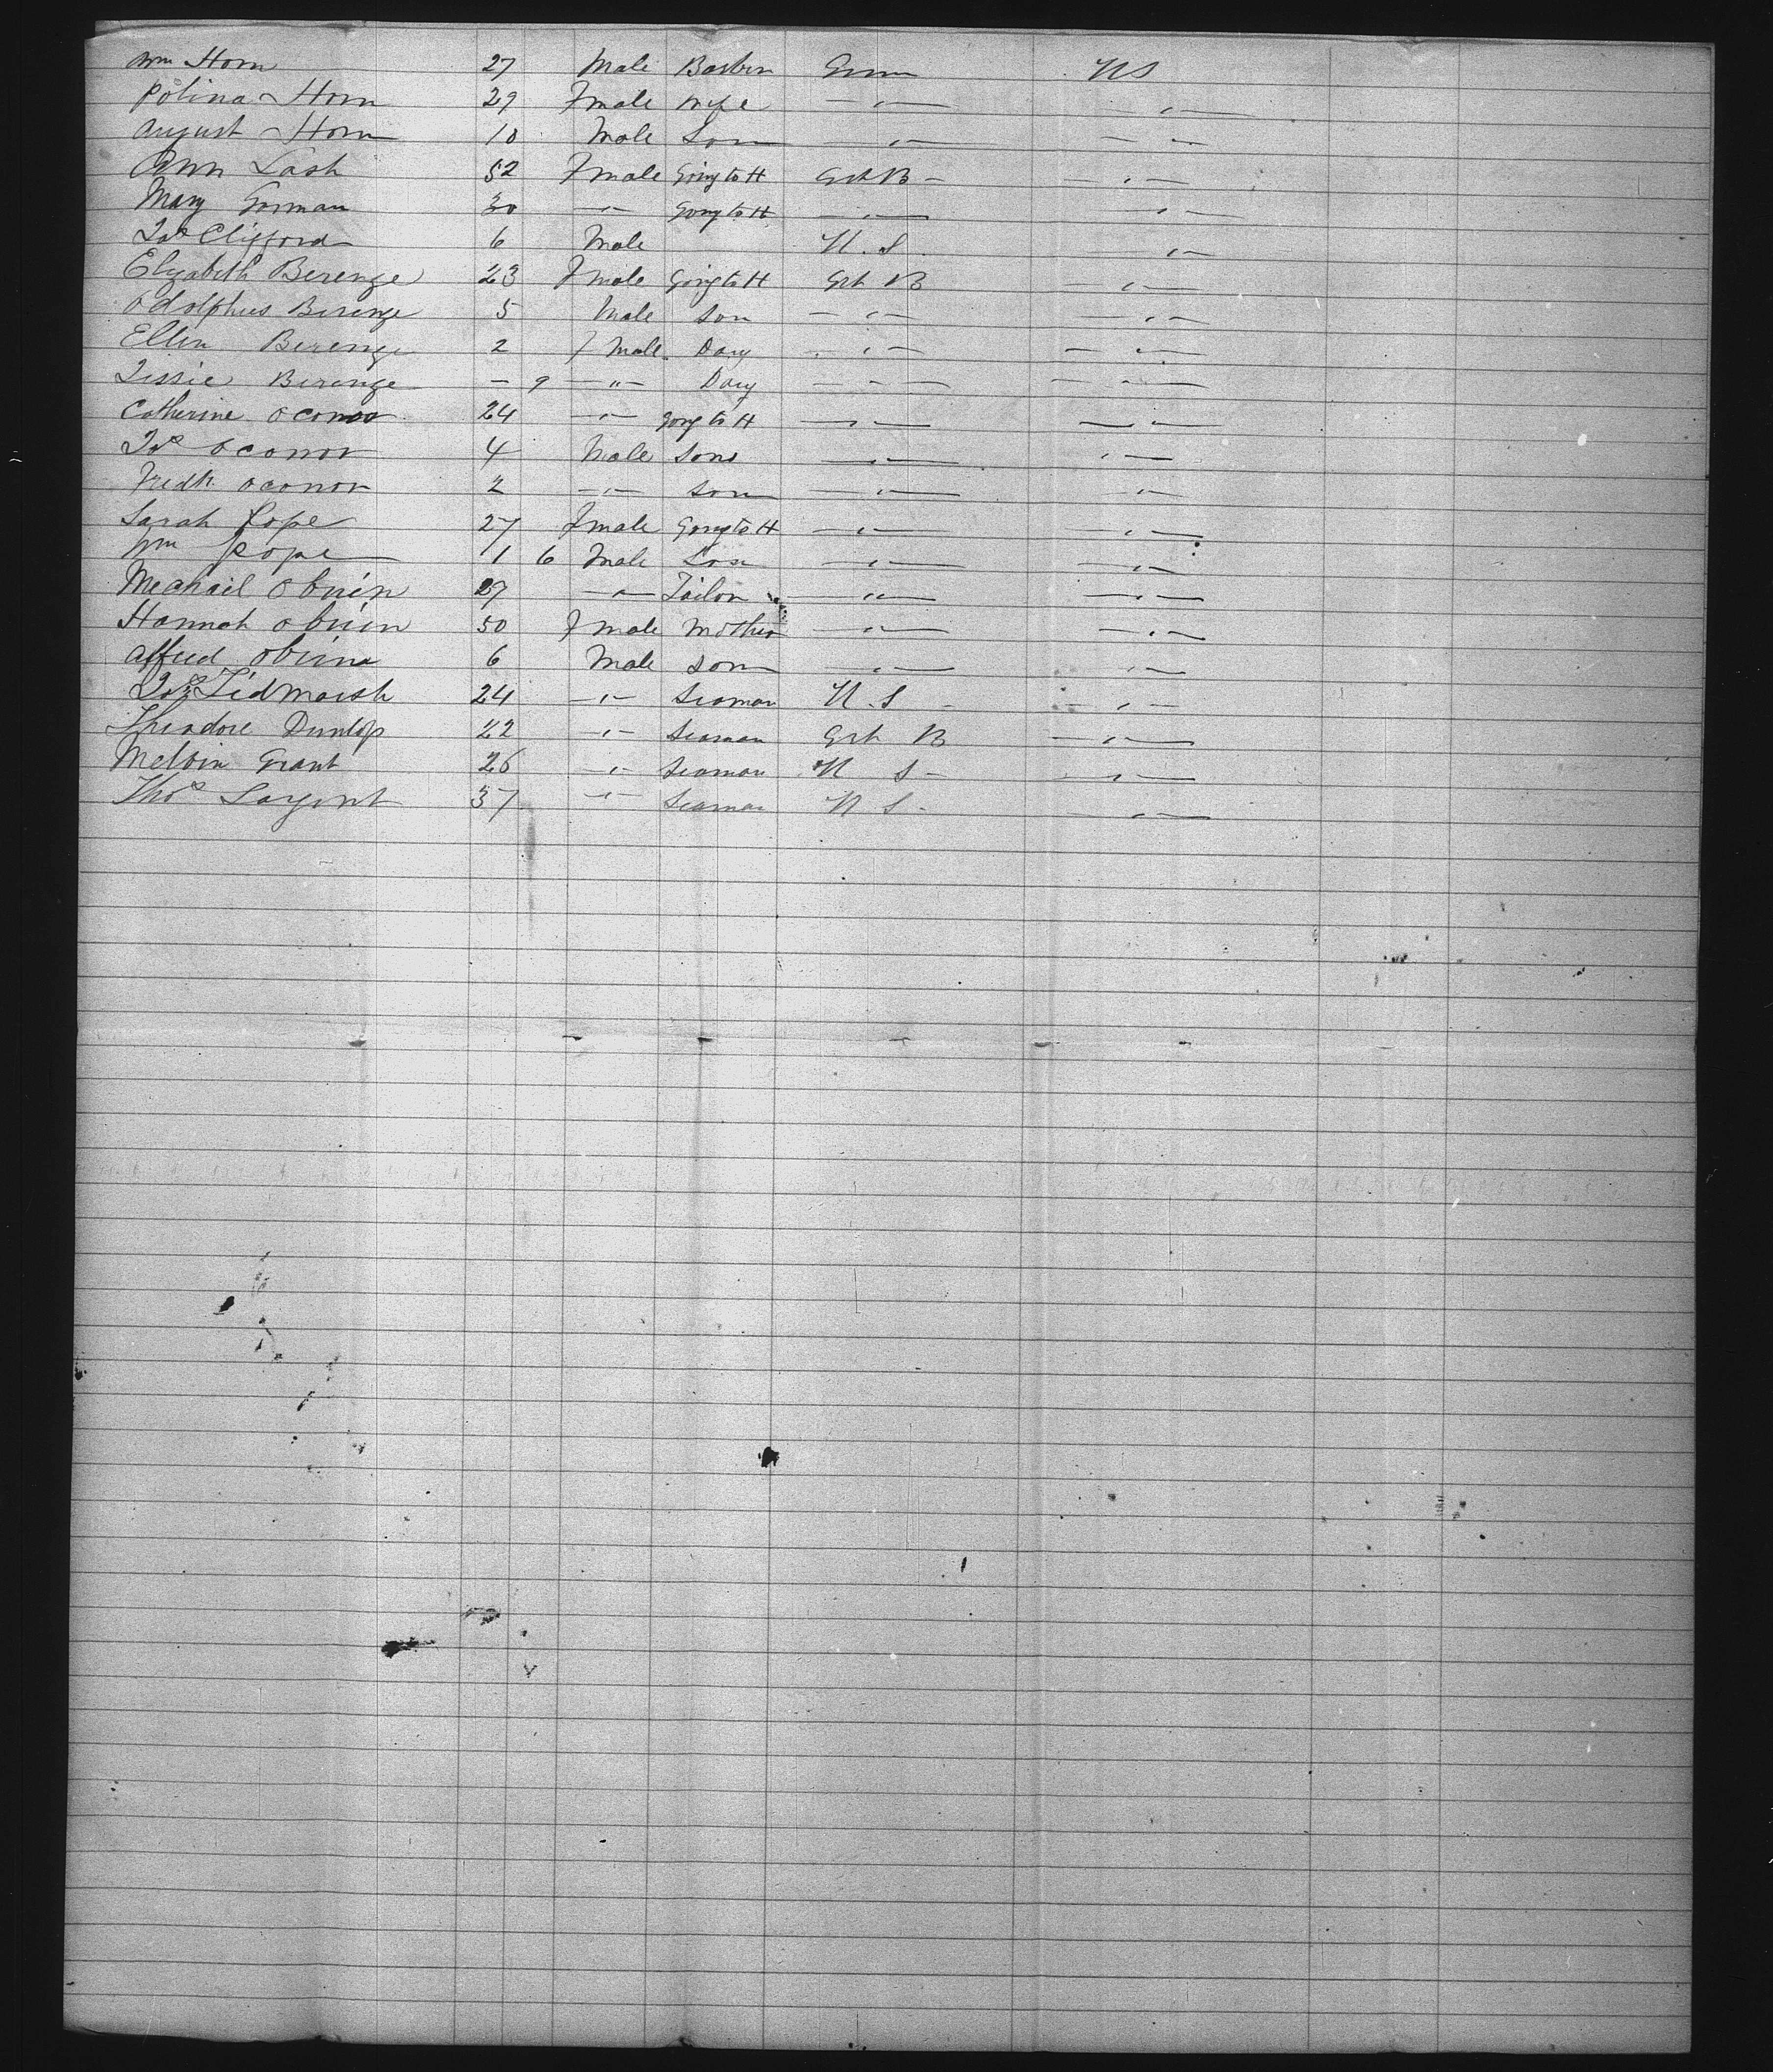 Wm Horn 27 Male Barber Germ US
Polina Horn 29 Female Wife —"— —"—
August Horn 10 Male Son —"— —"—
Ann Lash 52 Female Going to H Grt B —"—
Mary Gorman 30 —"— Going to H —"— —"—
Jas Clifford 6 Male U.S. —"—
Elizabeth Berenge 23 Female Going to H Grt B —"—
Adolphus Berenge 5 Male Son —"— —"—
Ellen Berenge 2 Female Daug —"— —"—
Jessie Berenge — 9 —"— Daug —"— —"—
Catherine Oconor 24 —"— Going to H —"— —"—
Jos Oconor 4 Male Sons —"— —"—
Fredk Oconor 2 —"— Son —"— —"—
Sarah Pope 27 Female Going to H —"— —"—
Wm Pope 1 6 Male Son —"— —"—
Meahail Obrien 27 —"— Tailor —"— —"—
Hannah Obrien 50 Female Mother —"— —"—
Alfred Obrine 6 Male Son —"— —"—
Tidmarsh 24 —"— Seaman U.S —"—
Theadore Dunlop 22 —"— Seaman Grt B —"—
Melvin Grant 26 —"— Seaman U S —"—
Thos Sargent 37 —"— Seaman U S —"—